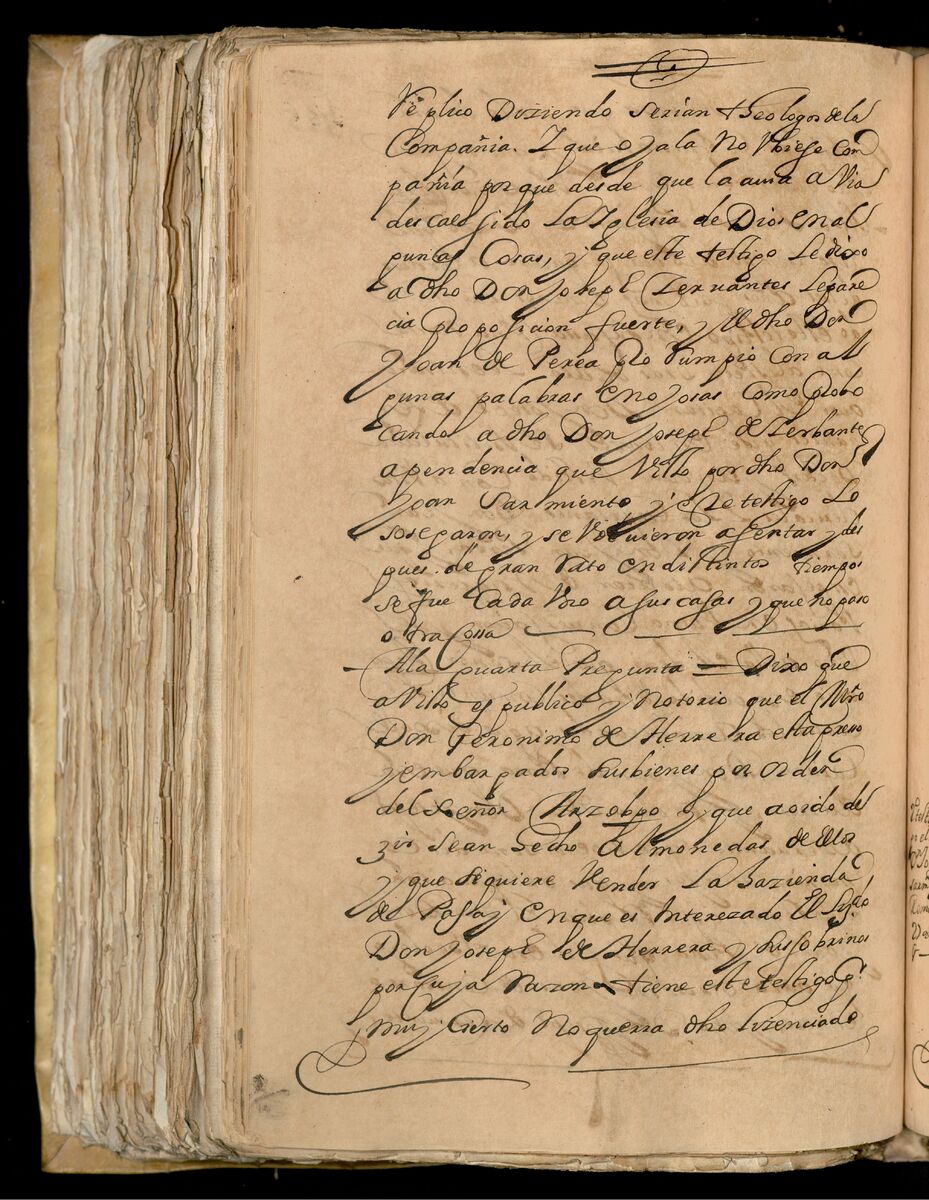 Replico Diziendo serian theologos de la
Compañia. Y que ojala no Vbiese Com
pañia porque desde que la auia aVia
descaesido La Iglesia de Dios en al
gunas Cosas, y que este testigo Le dixo
a dho Don Joseph Zervantes Le pare
cia Proposicion fuerte, y El dho Don
Joan de Perea Prorumpio con al
gunas palabras enojosas como Probo
cando a dho Don Joseph de Zerbantes
a pendencia que Visto por dho Don
Joan Sarmiento y este testigo Lo
sosegaron, y se Voluieron a sentar y des
pues de gran Rato en distintos tiempos
se fue Cada Vno a sus casas y que no paso
otra Cossa
A la quarta Pregunta = Dixo que
a Visto es publico y Notorio que el Mro
Don Geronimo de Herrera esta presso
y embargados sus bienes por orden
del Señor Arzobpo y que a oido de
zir sean hecho Almonedas de ellos
y que siquiere Vender La hazienda
de Pasaj en que es Interezado El
Don Joseph de Herrera y sus sobrinos
por cuja Razon tiene este testigo pr
muy Cierto No querra dho Lizenciado